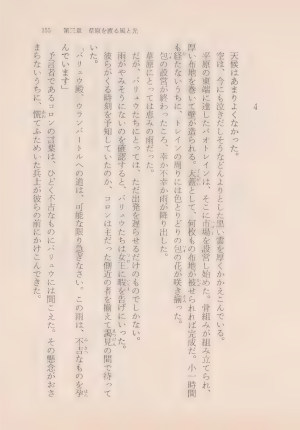 155　第二章　草原を渡る風と炎
4
天候はあまりよくなかった。
空は、今にも泣きだしそうなどんよりとした黒い雲を厚くかかえこんでいる。
平原の東端に達したパオトレインは、そこに市場を設営し始めた。骨組みが組み立てられ、
厚い布地を巻いて壁が造られる。天蓋として、何枚もの布地が被せられれば完成だ。小一時間
も経たないうちに、トレインの周りには色とりどりの包の花が咲き揃った。
包の設営が終わったころ、幸か不幸か雨が降り出した。
草原にとっては恵みの雨だった。
が、バリュウたちにとっては、ただ出発を遅らせるだけのものでしかない。
雨がやみそうにないのを確認すると、バリュウたちは女王に暇を告げにいった。
彼らがくる時刻を予知していたのか、コロンは主だった側近の者を揃えて謁見の間で待って
いた。
「バリュウ殿、ウランバートルへの道は、可能な限り急ぎなさい。この雨は、不吉なものを孕
んでいます」
予言者であるコロンの言葉は、ひどく不吉なものにバリュウには聞こえた。その懸念がおさ
まらないうちに、慌てふためいた兵士が彼らの前にかけこんできた。